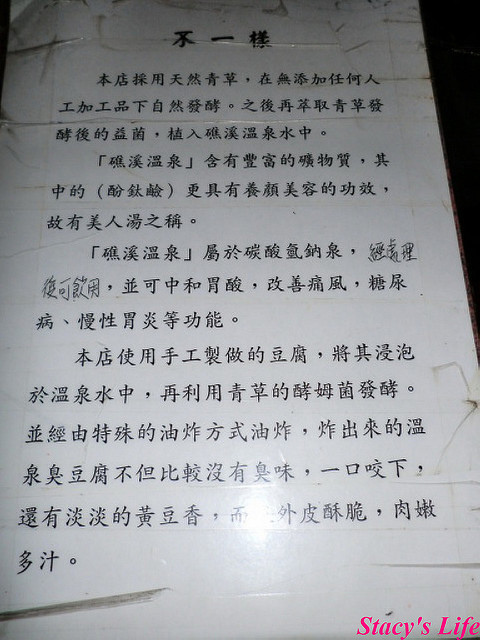 不一樣
本店採用天然青草，在無添加任何人
工加工品下自然發酵。之後再萃取青草發
酵後的益菌，植入礁溪溫泉水中。
「礁溪溫泉」含有豐富的礦物質，其
中的（酚鈦鹼）更具有養顏美容的功效，
故有美人湯之稱。
「礁溪溫泉」屬於碳酸氫鈉泉，經處理
後可飲用，並可中和胃酸，改善痛風，糖尿
病、慢性胃炎等功能。
本店使用手工製做的豆腐，將其浸泡
於溫泉水中，再利用青草的酵姆菌發酵。
並經由特殊的油炸方式油炸，炸出來的溫
泉臭豆腐不但比較沒有臭味，一口咬下，
還有淡淡的黃豆香，而外皮酥脆，肉嫩
多汁。
Stacy's Life